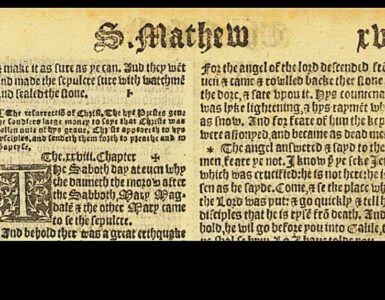 S. Mathew
xv
make it as sure as ye can. And they wēt
and made the sepulcre sure with watchmē
and sealed the stone.
The resurrectiō of Christ. The hye Prestes geue
the souldiers large money to saye that Christe was
stollen oute of hys graue. Christ appereth to hys
and sendeth them forth to preache and to
baptyse.
The .xxviii. Chapter
The Saboth day at euen whych
daunneth the morow after
the Sabboth, Mary Mag-
dalē & the other Mary came
to se the sepulcre.
And behold ther was a great erthquake
For the angel of the lord descended frō
uen & came & rowlled backe ther stone
the dore, & sate upon it. Hys countenau
was lyke lyghtening, & hys raymēt wh
as snow. And for feare of hym the kep
were astonyed, and became as dead mē
* The angel answered & sayd to the
men, feare ye not. I know yᵗ ye seke Je
which was crucified: he is not here: he is
sen as he sayde. Come, & se the place wh
the Lord was put: & go quickly & tell
disciples that he is rysē frō death. And
hold, he wil go before you into Galile, t
ye shal se hym. Lo I haue told you